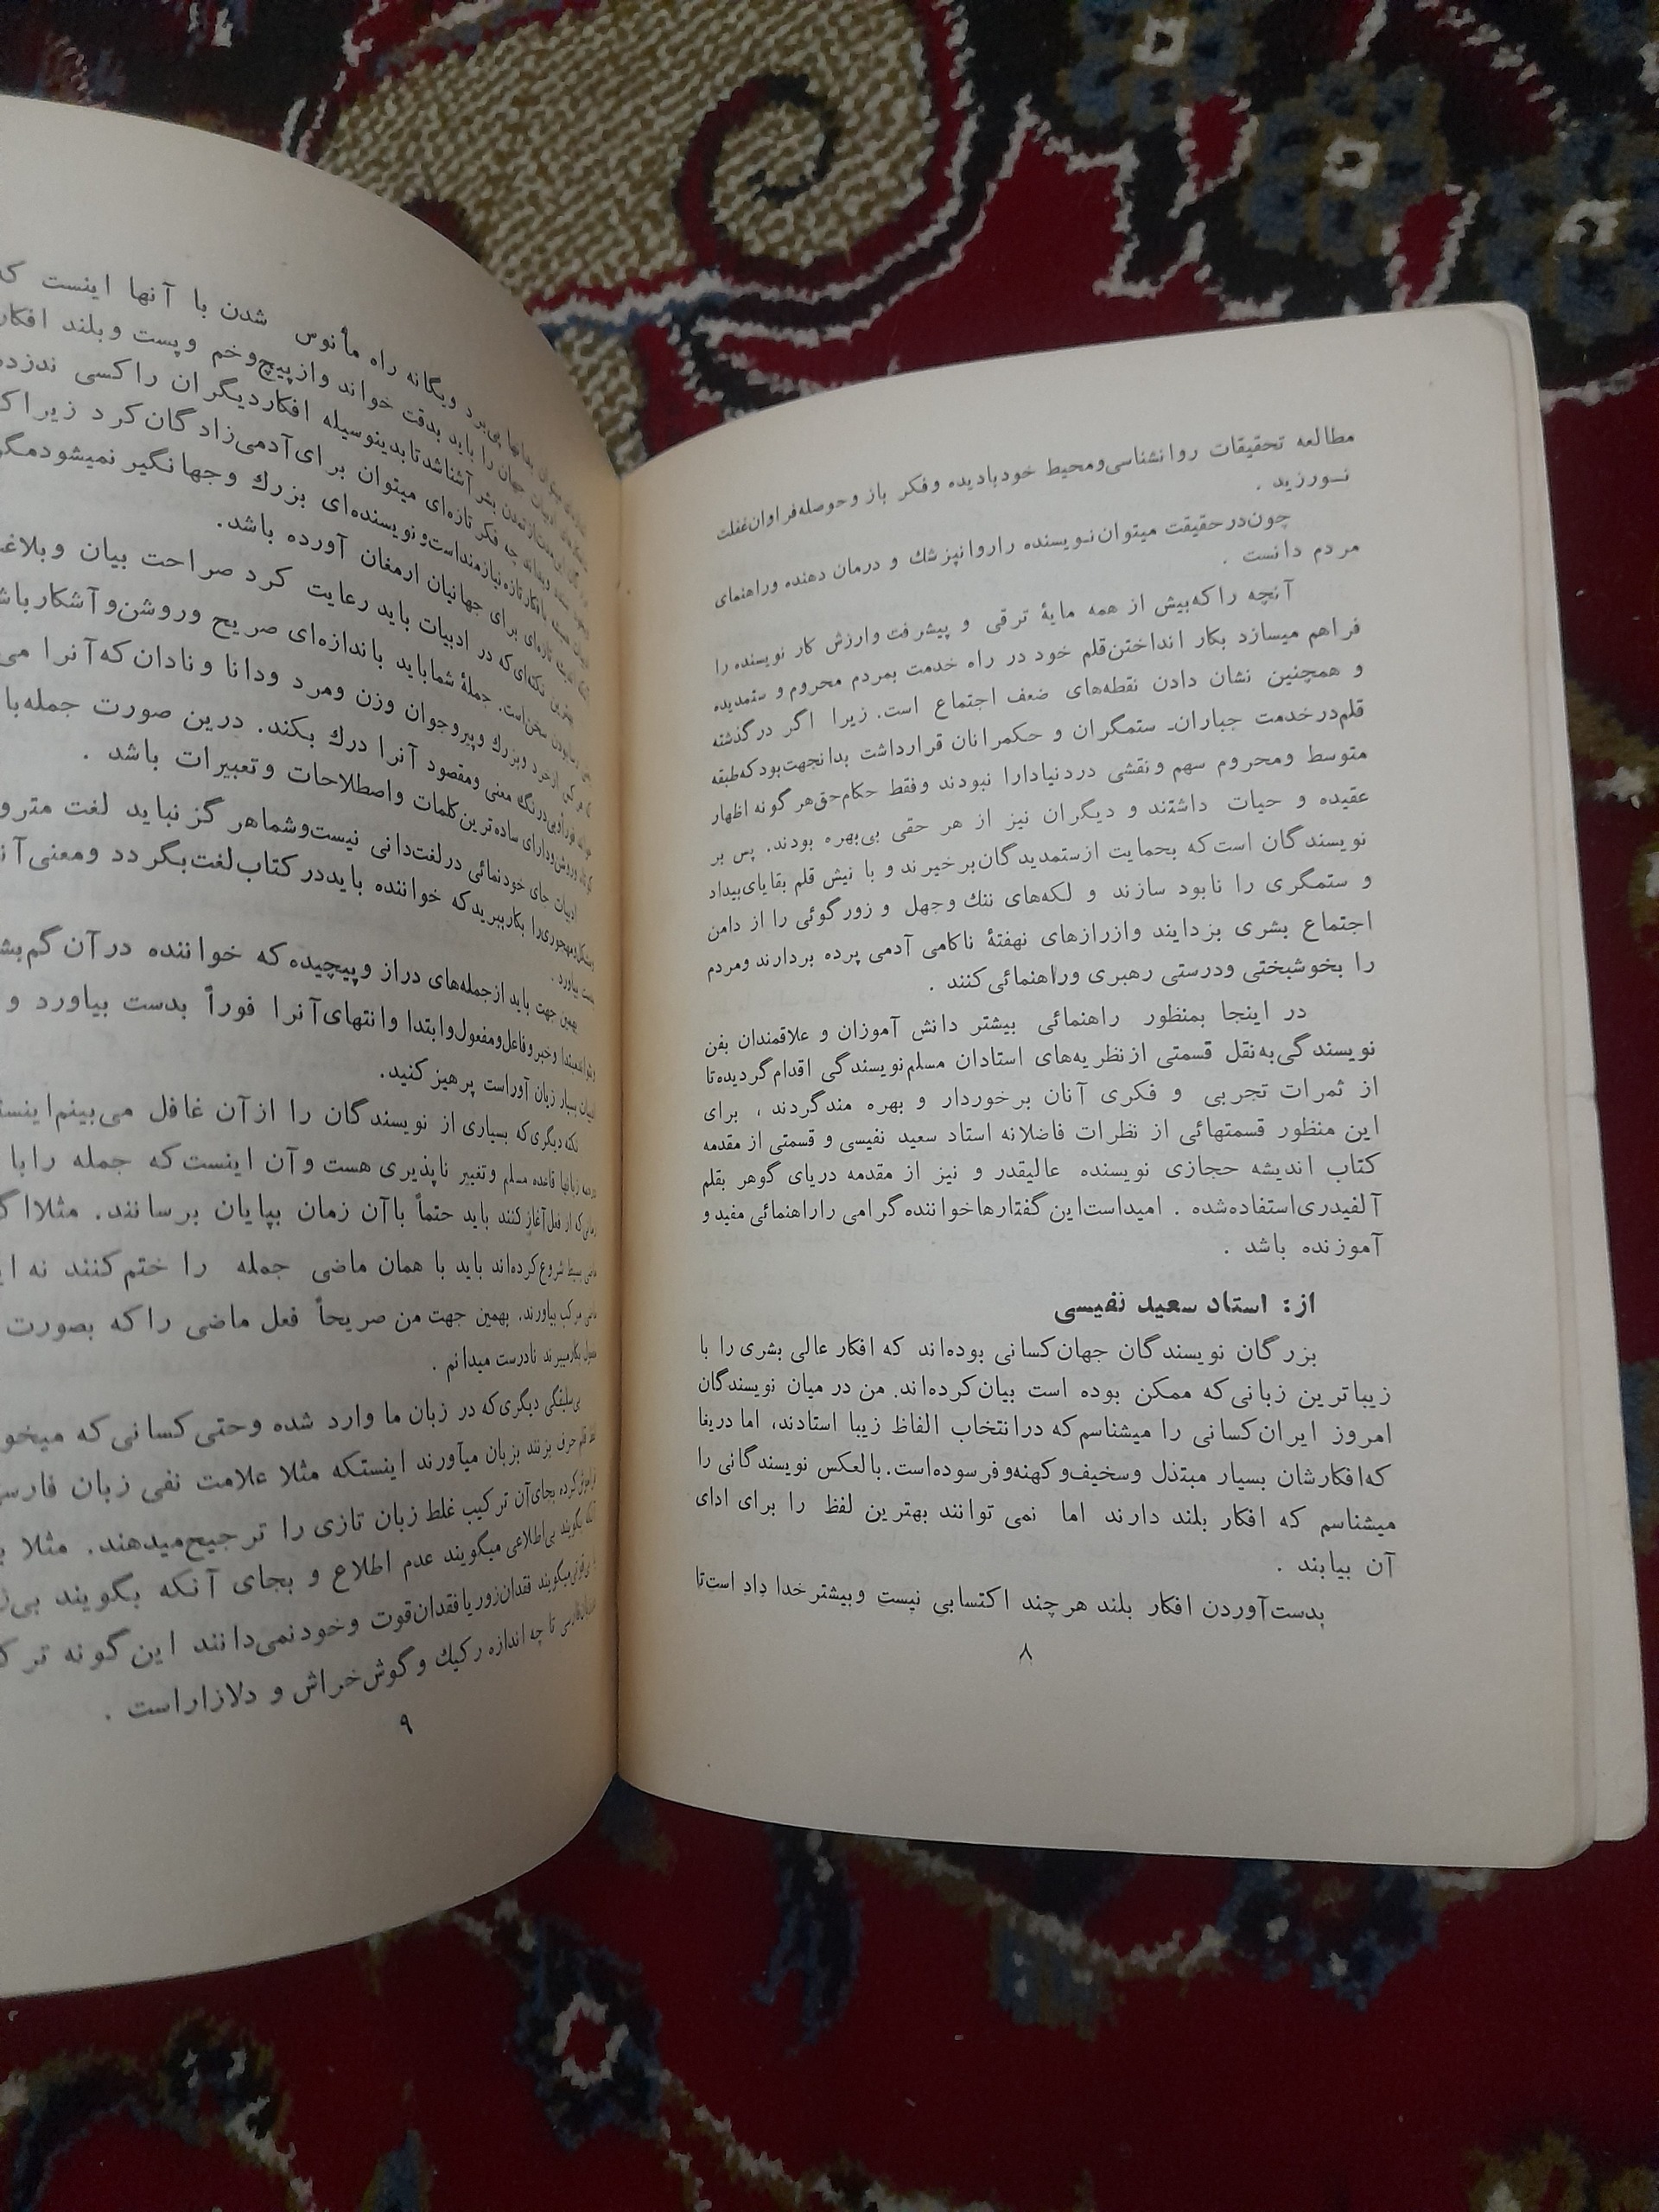 مطالعه تحقیقات روانشناسی‌ومحیط خودبادیده وفکر باز وحوصله‌فراوان‌غفلت
نـورزید .
چون‌درحقیقت میتوان‌نـویسنده راروانپزشك و درمان دهنده وراهنمای
مردم دانست .
آنچه راکه‌بیش از همه مایهٔ ترقی و پیشرفت وارزش کار نویسنده را
فراهم میسازد بکار انداختن‌قلم خود در راه خدمت بمردم محروم و ستمدیده
و همچنین نشان دادن نقطه‌های ضعف اجتماع است. زیرا اگر درگذشته
قلم‌درخدمت جباران۔ ستمگران و حکمرانان قرارداشت بدانجهت‌بودکه‌طبقه
متوسط ومحروم سهم ونقشی دردنیادارا نبودند وفقط حکام‌حق‌هر گونه اظهار
عقیده و حیات داشتند و دیگران نیز از هر حقی بی‌بهره بودند. پس بر
نویسندگان است‌که بحمایت ازستمدیدگان‌برخیرند و با نیش قلم بقایای‌بیداد
و ستمگری را نابود سازند و لکه‌های ننك وجهل و زورگوئی را از دامن
اجتماع بشری بزدایند وازرازهای نهفتهٔ ناکامی آدمی پرده بردارند ومردم
را بخوشبختی ودرستی رهبری وراهنمائی‌کنند .
در اینجا بمنظور راهنمائی بیشتر دانش آموزان و علاقمندان بفن
نویسندگی‌به‌نقل قسمتی ازنظریه‌های استادان مسلم‌نویسندگی اقدام‌گردیده‌تا
از ثمرات تجربی و فکری آنان برخوردار و بهره مندگردند ، برای
این منظور قسمتهائی از نظرات فاضلانه استاد سعید نفیسی و قسمتی از مقدمه
کتاب اندیشه حجازی نویسنده عالیقدر و نیز از مقدمه دریای گوهر بقلم
آلفیدری‌استفاده‌شده . امیداست‌این‌گفتارهاخواننده‌گرامی راراهنمائی مفید و
آموزنده باشد .
از: استاد سعید نفیسی
بزرگان نویسندگان جهان‌کسانی بوده‌اند که افکار عالی بشری را با
زیباترین زبانی‌که ممکن بوده است بیان‌کرده‌اند. من در میان نویسندگان
امروز ایران‌کسانی را میشناسم‌که درانتخاب الفاظ زیبا استادند، اما دریغا
که‌افکارشان بسیار مبتذل وسخیف‌وکهنه‌وفرسوده‌است. بالعکس نویسندگانی را
میشناسم که افکار بلند دارند اما نمی توانند بهترین لفظ را برای ادای
آن بیابند .
بدست‌آوردن افکار بلند هرچند اکتسابی نیست وبیشترخدا داد است‌تا
۸
ویگانه راه مأنوس شدن با آنها اینست
را باید بدقت خواند وازپیچ‌وخم وپست وبلند
آشناشدتابدینوسیله افکاردیگران راکسی
چه فکر تازه‌ای میتوان برای‌آدمی‌زادگان‌کرد
نیازمنداست‌ونویسنده‌ای بزرك وجهانگیر
برای جهانیان ارمغان آورده باشد.
نکته‌ای‌که در ادبیات باید رعایت کرد صراحت بیان
سخن‌است. جملهٔ شماباید باندازه‌ای صریح وروشن‌وآشکار
وبزرك وپیروجوان وزن ومرد ودانا ونادان‌که‌آنرا
معنی ومقصود آنرا درك بکند. درین صورت
ودارای ساده‌ترین‌کلمات واصطلاحات وتعبیرات باشد .
ادبیات جای خودنمائی درلغت‌دانی نیست‌وشماهرگز نباید لغت
بکارببریدکه خواننده بایددرکتاب‌لغت‌بگردد
بیاورد .
بهمین جهت باید ازجمله‌های دراز وپیچیده که خواننده درآن
وخبروفاعل‌ومفعول‌وابتدا وانتهای‌آنرا فوراً بدست بیاورد و
بسیار زبان آوراست پرهیزکنید.
نکته دیگری‌که بسیاری از نویسندگان را ازآن غافل می‌بینم
زبانها قاعده مسلم وتغییر ناپذیری هست وآن اینست‌که جمله رابا
که از فعل‌آغازکنند باید حتماً باآن زمان بپایان برسانند. مثلا
بسیط شروع‌کرده‌اند باید با همان ماضی جمله را ختم‌کنند نه
مرکب بیاورند. بهمین جهت من صریحاً فعل ماضی راکه بصورت
بکارمیبرند نادرست میدانم .
بی‌سلیقگی دیگری‌که در زبان ما وارد شده وحتی‌کسانی‌که
حرف بزنند بزبان میآورند اینستکه مثلا علامت نفی زبان
بجای‌آن ترکیب غلط زبان تازی را ترجیح‌میدهند. مثلا
بگویند بی‌اطلاعی میگویند عدم اطلاع و بجای آنکه بگویند
میگویند فقدان‌زوریافقدان‌قوت وخودنمی‌دانند این‌گونه
تا چه اندازه رکیك وگوش‌خراش و دلازاراست .
۹